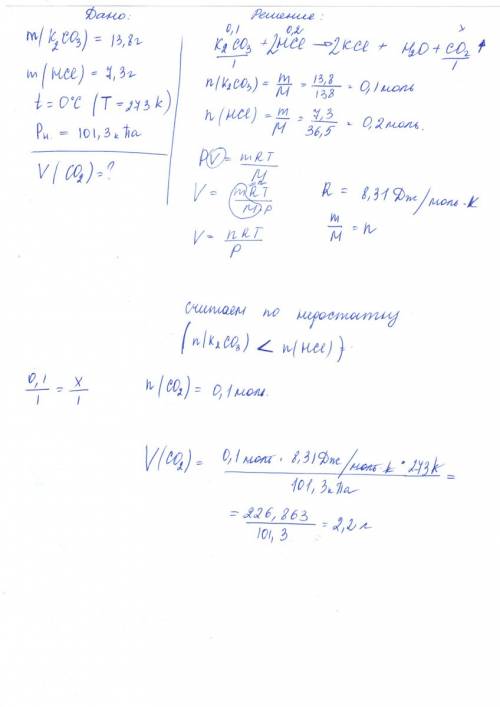 Дано:
m(K2CO3) = 13,8г
m(HCl) = 7,3г
t = 0°C (T = 273k)
Pн. = 101,3кПа
V(CO2) = ?
Решение:
0,1 0,2 x
K2CO3 + 2HCl → 2KCl + H2O + CO2↑
1 1
n(K2CO3) = m/M = 13,8/138 = 0,1моль
n(HCl) = m/M = 7,3/36,5 = 0,2моль.
PV = mRT/M
V = mRT/M·P R = 8,31 Дж/моль·К
m/M = n
V = nRT/P
считаем по недостатку
(n(K2CO3) < n(HCl)).
0,1/1 = x/1 n(CO2) = 0,1моль.
V(CO2) = 0,1моль · 8,31Дж/моль·k · 273k / 101,3кПа =
= 226,863/101,3 = 2,2л